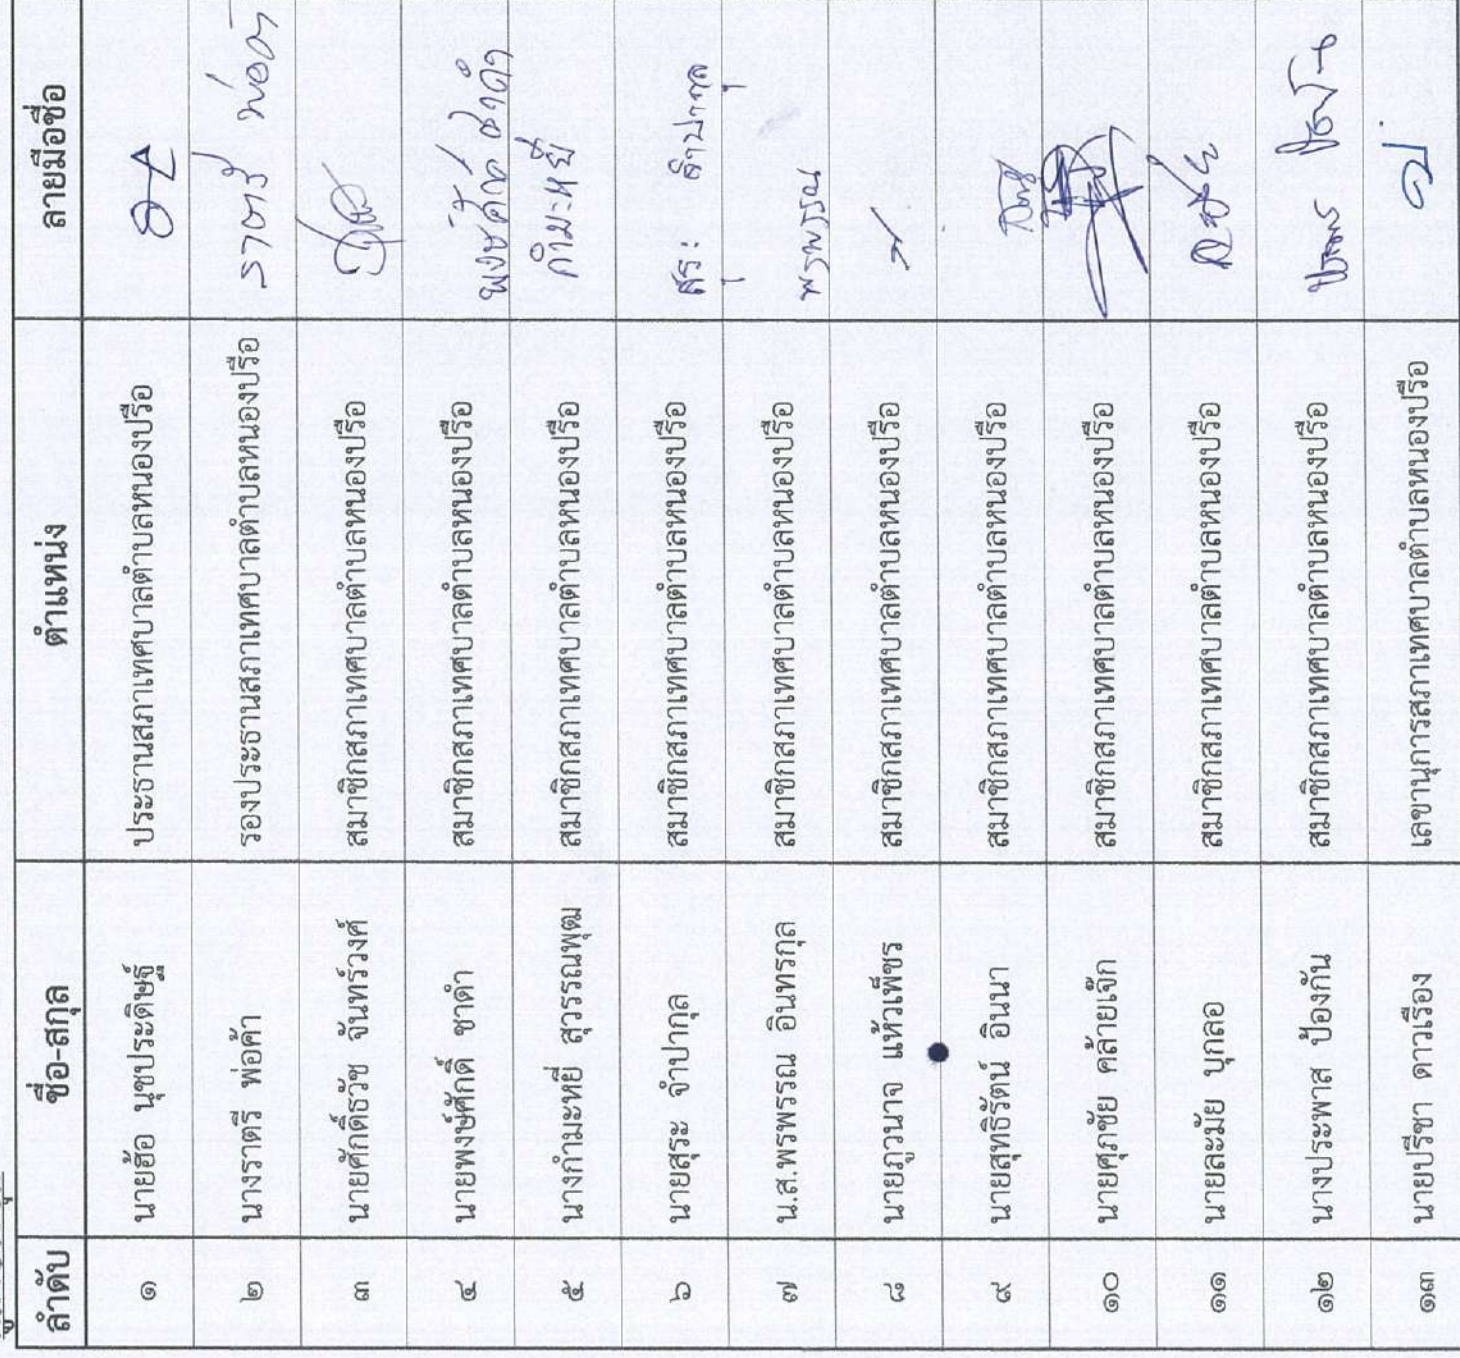 ลำดับ ชื่อ-สกุล ตำแหน่ง ลายมือชื่อ
๑ นายฮ้อ นุชประดิษฐ์ ประธานสภาเทศบาลตำบลหนองปรือ
๒ นางราตรี พ่อค้า รองประธานสภาเทศบาลตำบลหนองปรือ ราตรี พ่อค้า
๓ นายศักดิ์ธวัช จันทร์วงศ์ สมาชิกสภาเทศบาลตำบลหนองปรือ
๔ นายพงษ์ศักดิ์ ชาดำ สมาชิกสภาเทศบาลตำบลหนองปรือ พงษ์ศักดิ์ ชาดำ
๕ นางกำมะหยี่ สุวรรณพุฒ สมาชิกสภาเทศบาลตำบลหนองปรือ กำมะหยี่
๖ นายสุระ จำปากุล สมาชิกสภาเทศบาลตำบลหนองปรือ สุระ จำปากุล
๗ น.ส.พรพรรณ อินทรกุล สมาชิกสภาเทศบาลตำบลหนองปรือ พรพรรณ
๘ นายภูวนาจ แห้วเพ็ชร สมาชิกสภาเทศบาลตำบลหนองปรือ
๙ นายสุทธิรัตน์ อินนา สมาชิกสภาเทศบาลตำบลหนองปรือ
๑๐ นายศุภชัย คล้ายเจ๊ก สมาชิกสภาเทศบาลตำบลหนองปรือ
๑๑ นายละมัย บุกลอ สมาชิกสภาเทศบาลตำบลหนองปรือ
๑๒ นางประพาส ป้องกัน สมาชิกสภาเทศบาลตำบลหนองปรือ
๑๓ นายปรีชา ดาวเรือง เลขานุการสภาเทศบาลตำบลหนองปรือ